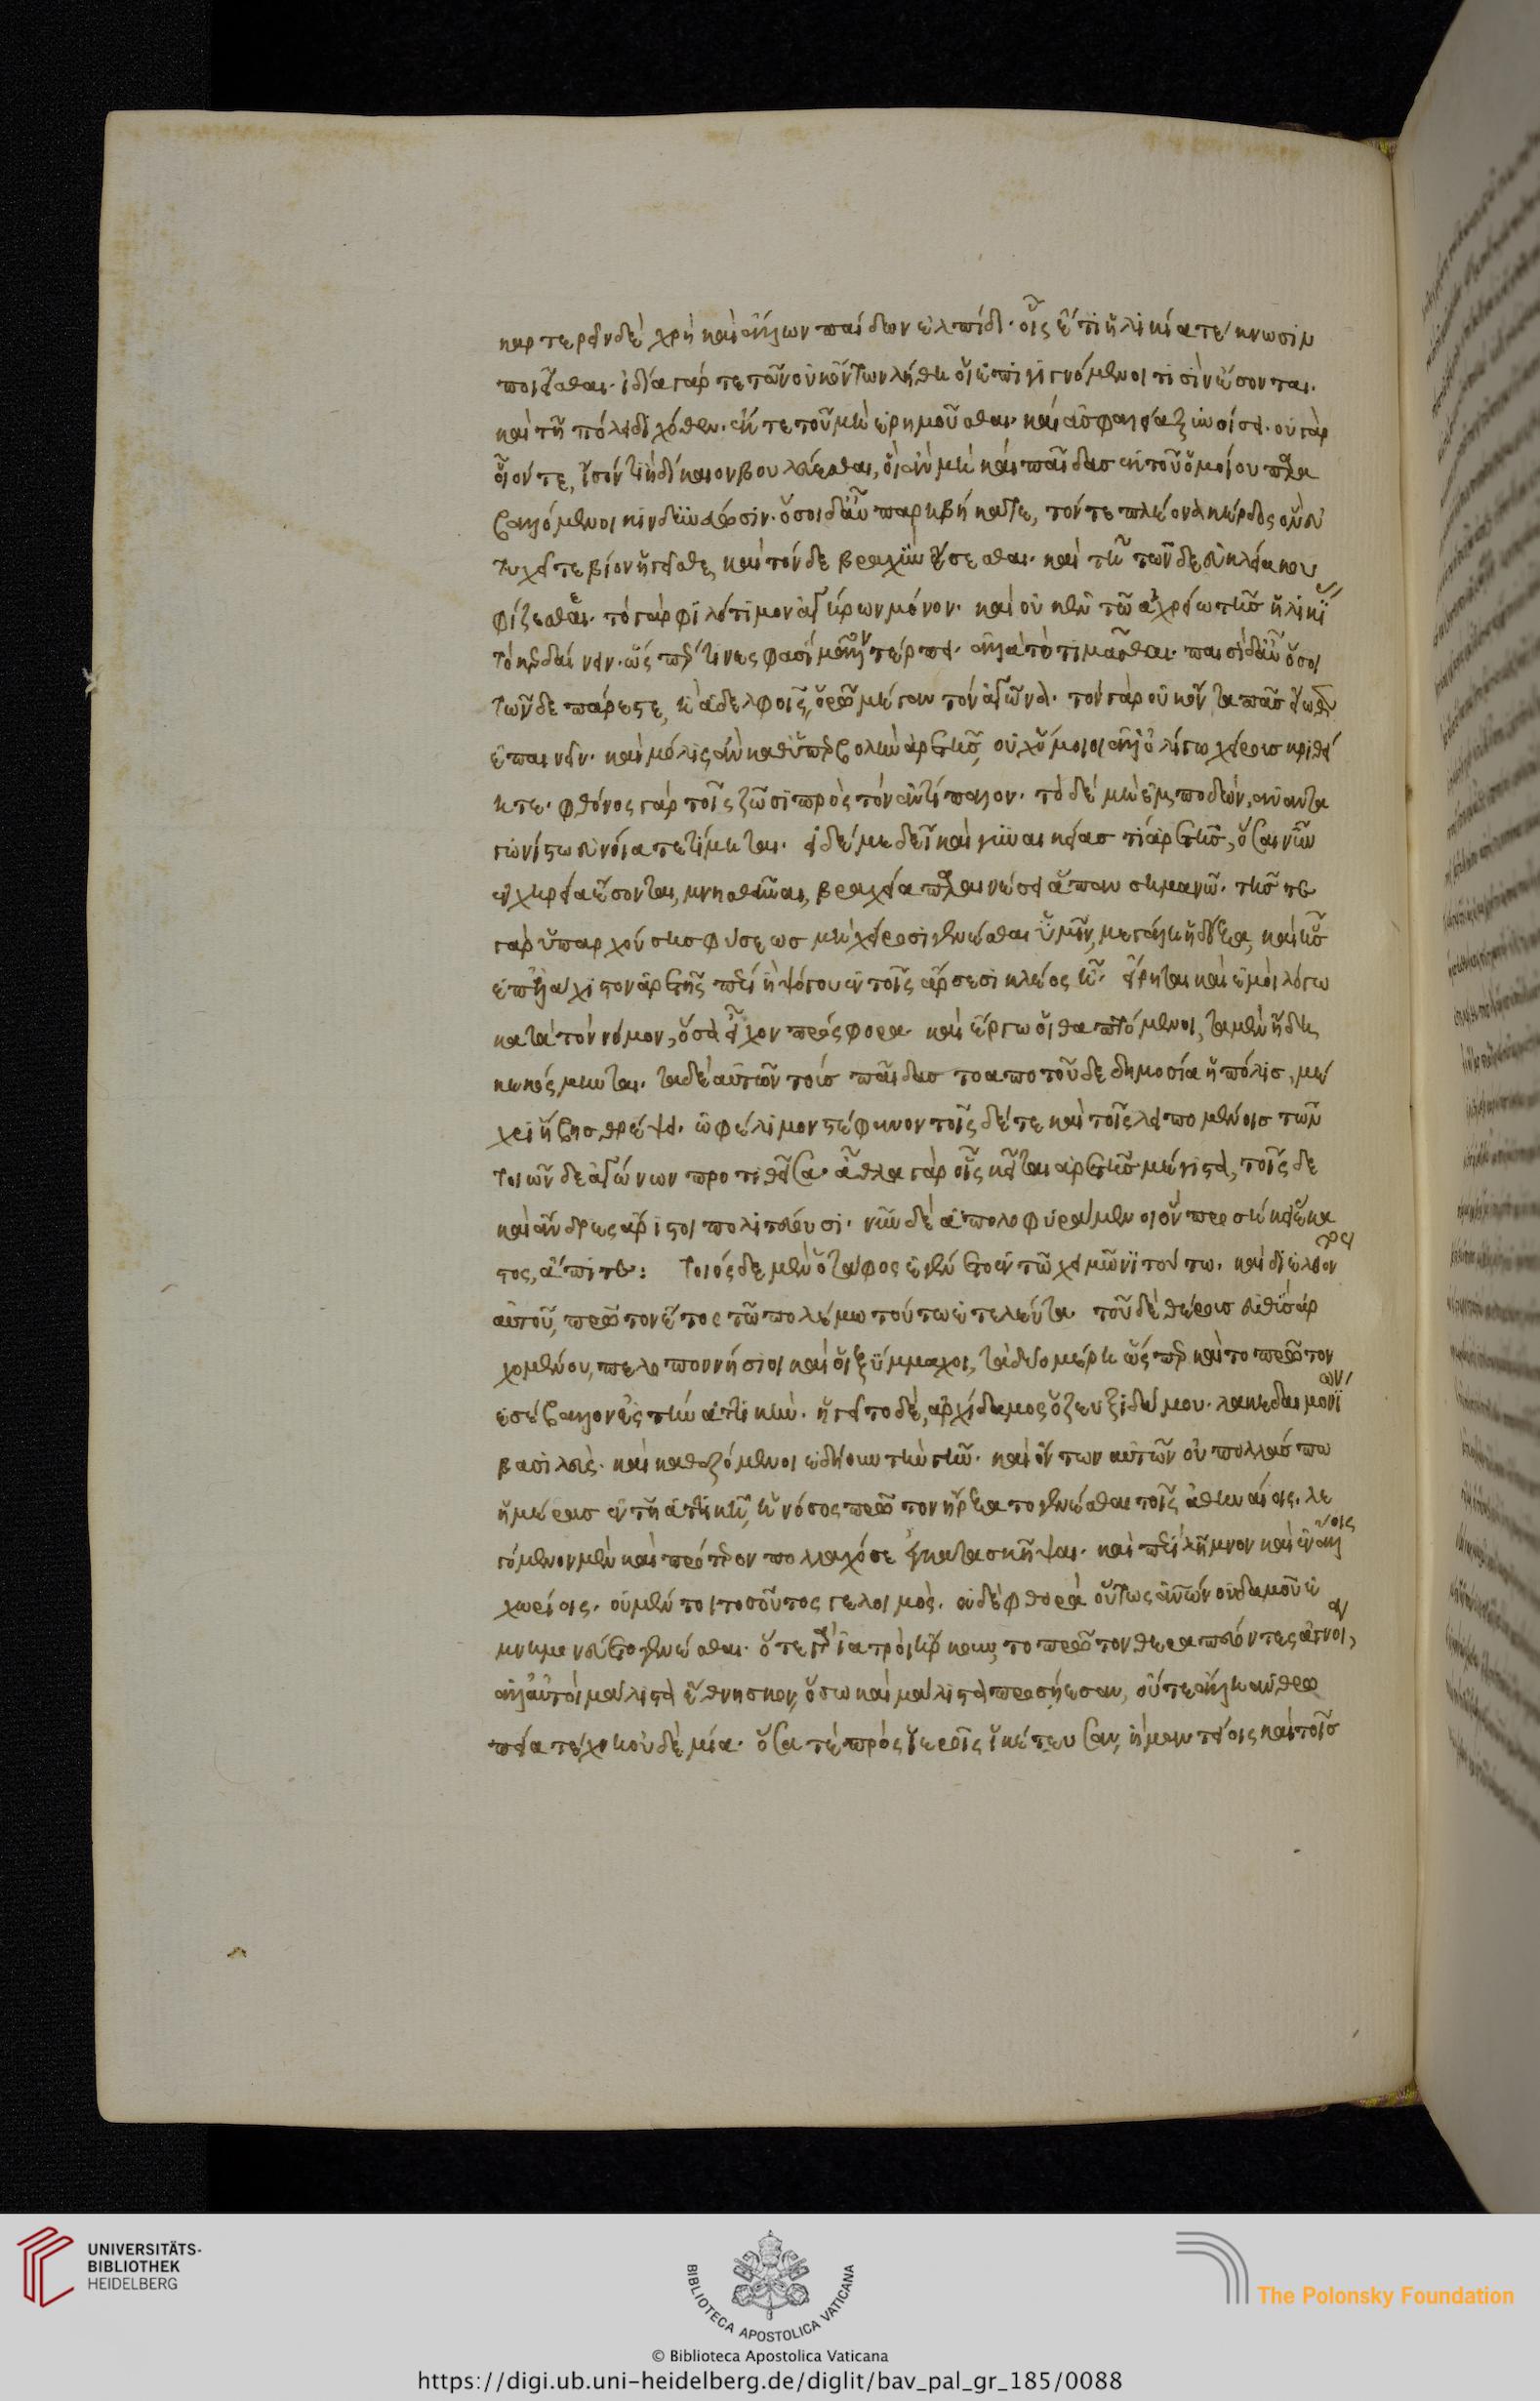 καρτερεῖν δὲ χρὴ καὶ ἄλλων παίδων ἐλπίδι· οἷς ἔτι ἡλικία τέκνωσιν
ποιεῖσθαι· ἰδία γάρ τε τῶν οὐκ ὄντων λήθη οἱ ἐπιγιγνόμενοι τισὶν ἔσονται.
καὶ τῇ πόλει διχόθεν· ἔκ τε τοῦ μὴ ἐρημοῦσθαι· καὶ ἀσφαλεία ξυνοίσει· οὐ γὰρ
οἷόν τε, ἴσόν τι ἢ δίκαιον βουλεύεσθαι, οἳ ἂν μὴ καὶ παῖδας ἐκ τοῦ ὁμοίου παρα
βαλλόμενοι κινδυνεύωσιν· ὅσοι δ' αὖ παρηβήκατε, τόν τε πλέονα κέρδος ὃν εὐ
τυχεῖτε βίον ἡγεῖσθε, καὶ τόνδε βραχὺν ἔσεσθαι· καὶ τῇ τῶνδε εὐκλεία κου
φίζεσθε. τὸ γὰρ φιλότιμον ἀγήρων μόνον· καὶ οὐκ ἐν τῷ ἀχρείω τῆς ἡλικίας
τὸ κερδαίνειν· ὥσπερ τινές φασι μᾶλλον τέρπει· ἀλλὰ τὸ τιμᾶσθαι· παισὶ δ' αὖ ὅσοι
τῶνδε πάρεστε, ἢ ἀδελφοῖς, ὁρῶ μέγαν τὸν ἀγῶνα· τὸν γὰρ οὐκ ὄντα πᾶς εἴωθεν
ἐπαινεῖν· καὶ μόλις ἂν καθ' ὑπερβολὴν ἀρετῆς, οὐχ ὅμοιοι ἀλλ' ὀλίγω χείρους κριθεί
ητε· φθόνος γὰρ τοῖς ζῶσι πρὸς τὸν ἀντίπαλον· τὸ δὲ μὴ ἐμποδὼν, ἀνανταγ
γωνίστω εὐνοία τετίμηται. εἰ δέ με δεῖ καὶ γυναικείας τι ἀρετῆς, ὅσαι νῦν
ἐν χηρεία ἔσονται, μνησθῆναι, βραχεία παραινέσει ἅπαν σημανῶ. τῆς τε
γὰρ ὑπαρχούσης φύσεως μὴ χείροσι γενέσθαι ὑμῖν, μεγάλη ἡ δόξα, καὶ ἧς
ἐπ' ἐλάχιστον ἀρετῆς πέρι ἢ ψόγου ἐν τοῖς ἄρσεσι κλέος ᾖ· εἴρηται καὶ ἐμοὶ λόγω
κατὰ τὸν νόμον, ὅσα εἶχον πρόσφορα· καὶ ἔργω οἱ θαπτόμενοι, τὰ μὲν ἤδη
κεκόσμηνται. τὰ δὲ αὐτῶν τοὺς παῖδας τὸ ἀπὸ τοῦδε δημοσία ἡ πόλις, μέ
χρι ἥβης θρέψει· ὠφέλιμον στέφανον τοῖσδέ τε καὶ τοῖς λειπομένοις τῶν
τοιῶνδε ἀγώνων προτιθεῖσα· ἆθλα γὰρ οἷς κεῖται ἀρετῆς μέγιστα, τοῖς δε
καὶ ἄνδρες ἄριστοι πολιτεύουσι. νῦν δὲ ἀπολοφυράμενοι ὃν προσήκει ἕκα
στος, ἄπιτε: Τοιόσδε μὲν ὁ τάφος ἐγένετο ἐν τῷ χειμῶνι τούτω. καὶ διελθόντος
αὐτοῦ, πρῶτον ἔτος τῶ πολέμω τούτω ἐτελεύτα τοῦ δὲ θέρους εὐθὺς ἀρ
χομένου, πελοποννήσιοι καὶ οἱ ξύμμαχοι, τὰ δύο μέρη ὥσπερ καὶ τὸ πρῶτον
ἐσέβαλλον ἐς τὴν ἀττικήν. ἡγεῖτο δέ, ἀρχίδαμος ὁ ζευξιδάμου· λακεδαιμονίων
βασιλεύς· καὶ καθεζόμενοι ἐδήουν τὴν γῆν. καὶ ὄντων αὐτῶν οὐ πολλάς πω
ἡμέρας ἐν τῇ ἀττικῇ, ἡ νόσος πρῶτον ἤρξατο γενέσθαι τοῖς ἀθηναίοις. λε
γόμενον μὲν καὶ πρότερον πολλαχόσε ἐγκατασκῆψαι· καὶ περὶ λῆμνον καὶ ἐν ἄλλοις
χωρίοις. οὐ μέντοι τοσοῦτος γε λοιμὸς. οὐδὲ φθορὰ οὕτως ἀνῶν οὐδαμοῦ ἐ
μνημονεύετο γενέσθαι· οὔτε γὰρ ἰατροὶ ἤρκουν, τὸ πρῶτον θεραπεύοντες ἀγνοία,
ἀλλ' αὐτοὶ μάλιστα ἔθνησκον, ὅσω καὶ μάλιστα προσήεσαν, οὔτε ἄλλη ἀνθρω
πεία τέχνη οὐδὲ μία· ὅσα τὲ πρὸς ἱεροῖς ἱκέτευσαν, ἢ μαντείοις καὶ τοῖς
UNIVERSITÄTS-
BIBLIOTHEK
HEIDELBERG
BIBLIOTECA APOSTOLICA VATICANA
The Polonsky Foundation
© Biblioteca Apostolica Vaticana
https://digi.ub.uni-heidelberg.de/diglit/bav_pal_gr_185/0088